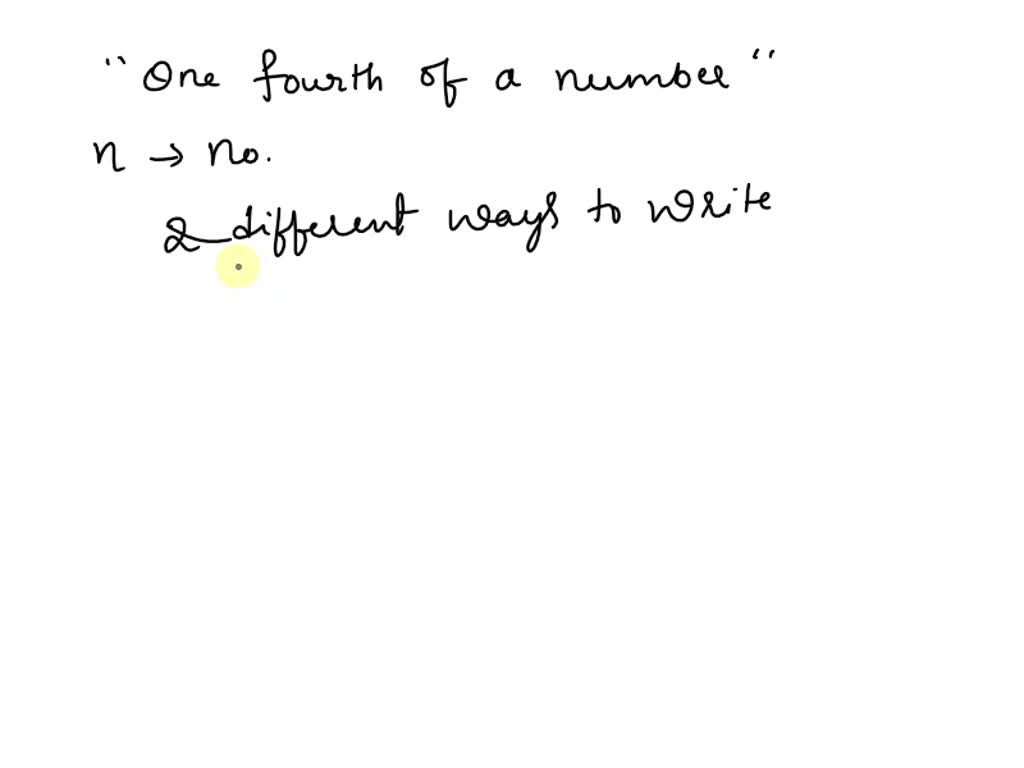 "One fourth of a number"
n → no.
2 different ways to write